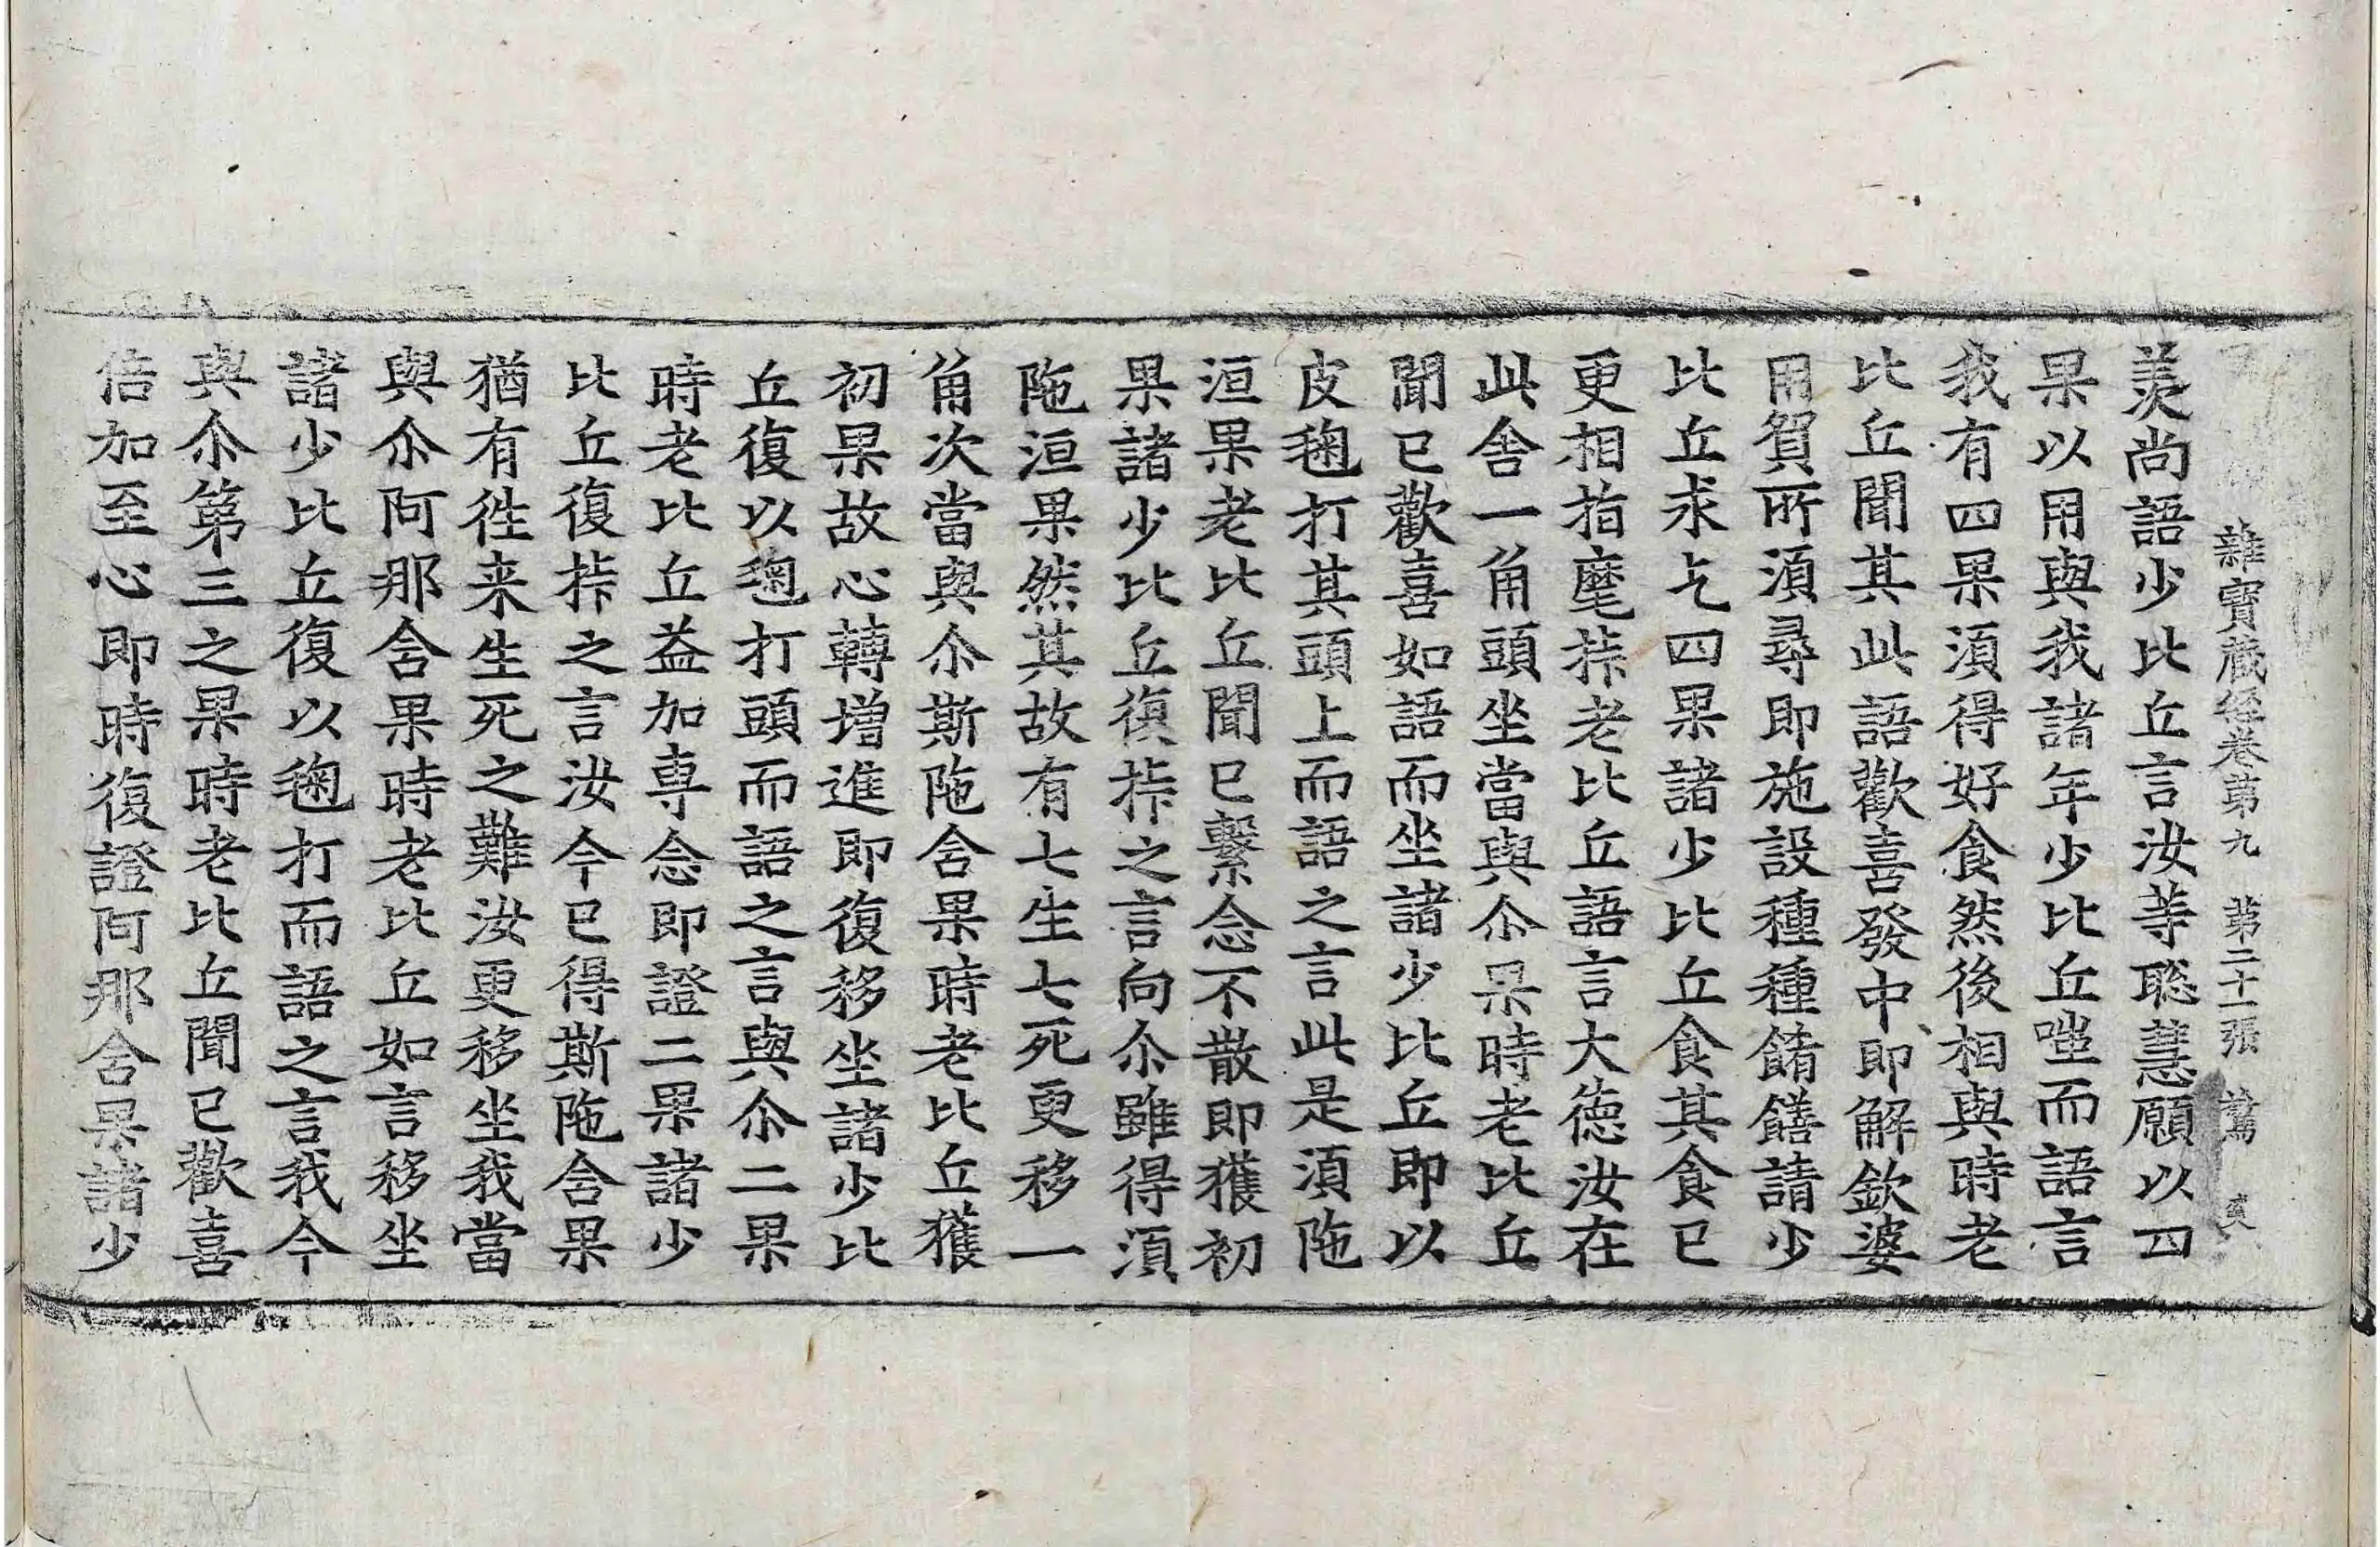 雜寶蔵經卷第九 第二十一張
羙尚語少比丘言汝䓁聡慧願以四
果以用與我諸年少比丘嗤而語言
我有四果湏得好食然後相與時老
比丘聞其此語歡喜發中即解欽婆
用貿所湏尋即施設種種餚饍請少
比丘求乞四果諸少比丘食其食已
更相指麾㧻老比丘語言大德汝在
此舎一角頭坐當與尒果時老比丘
聞已歡喜如語而坐諸少比丘即以
皮毱打其頭上而語之言此是湏陁
洹果老比丘聞已繫念不散即獲初
果諸少比丘復㧻之言向尒雖得湏
陁洹果然其故有七生七死更移一
角次當與尒斯陁含果時老比丘獲
初果故心轉增進即復移坐諸少比
丘復以毱打頭而語之言與尒二果
時老比丘益加専念即證二果諸少
比丘復㧻之言汝今已得斯陁含果
猶有徃来生死之難汝更移坐我當
與尒阿那含果時老比丘如言移坐
諸少比丘復以毱打而語之言我今
與尒第三之果時老比丘聞已歡喜
倍加至心即時復證阿那含果諸少